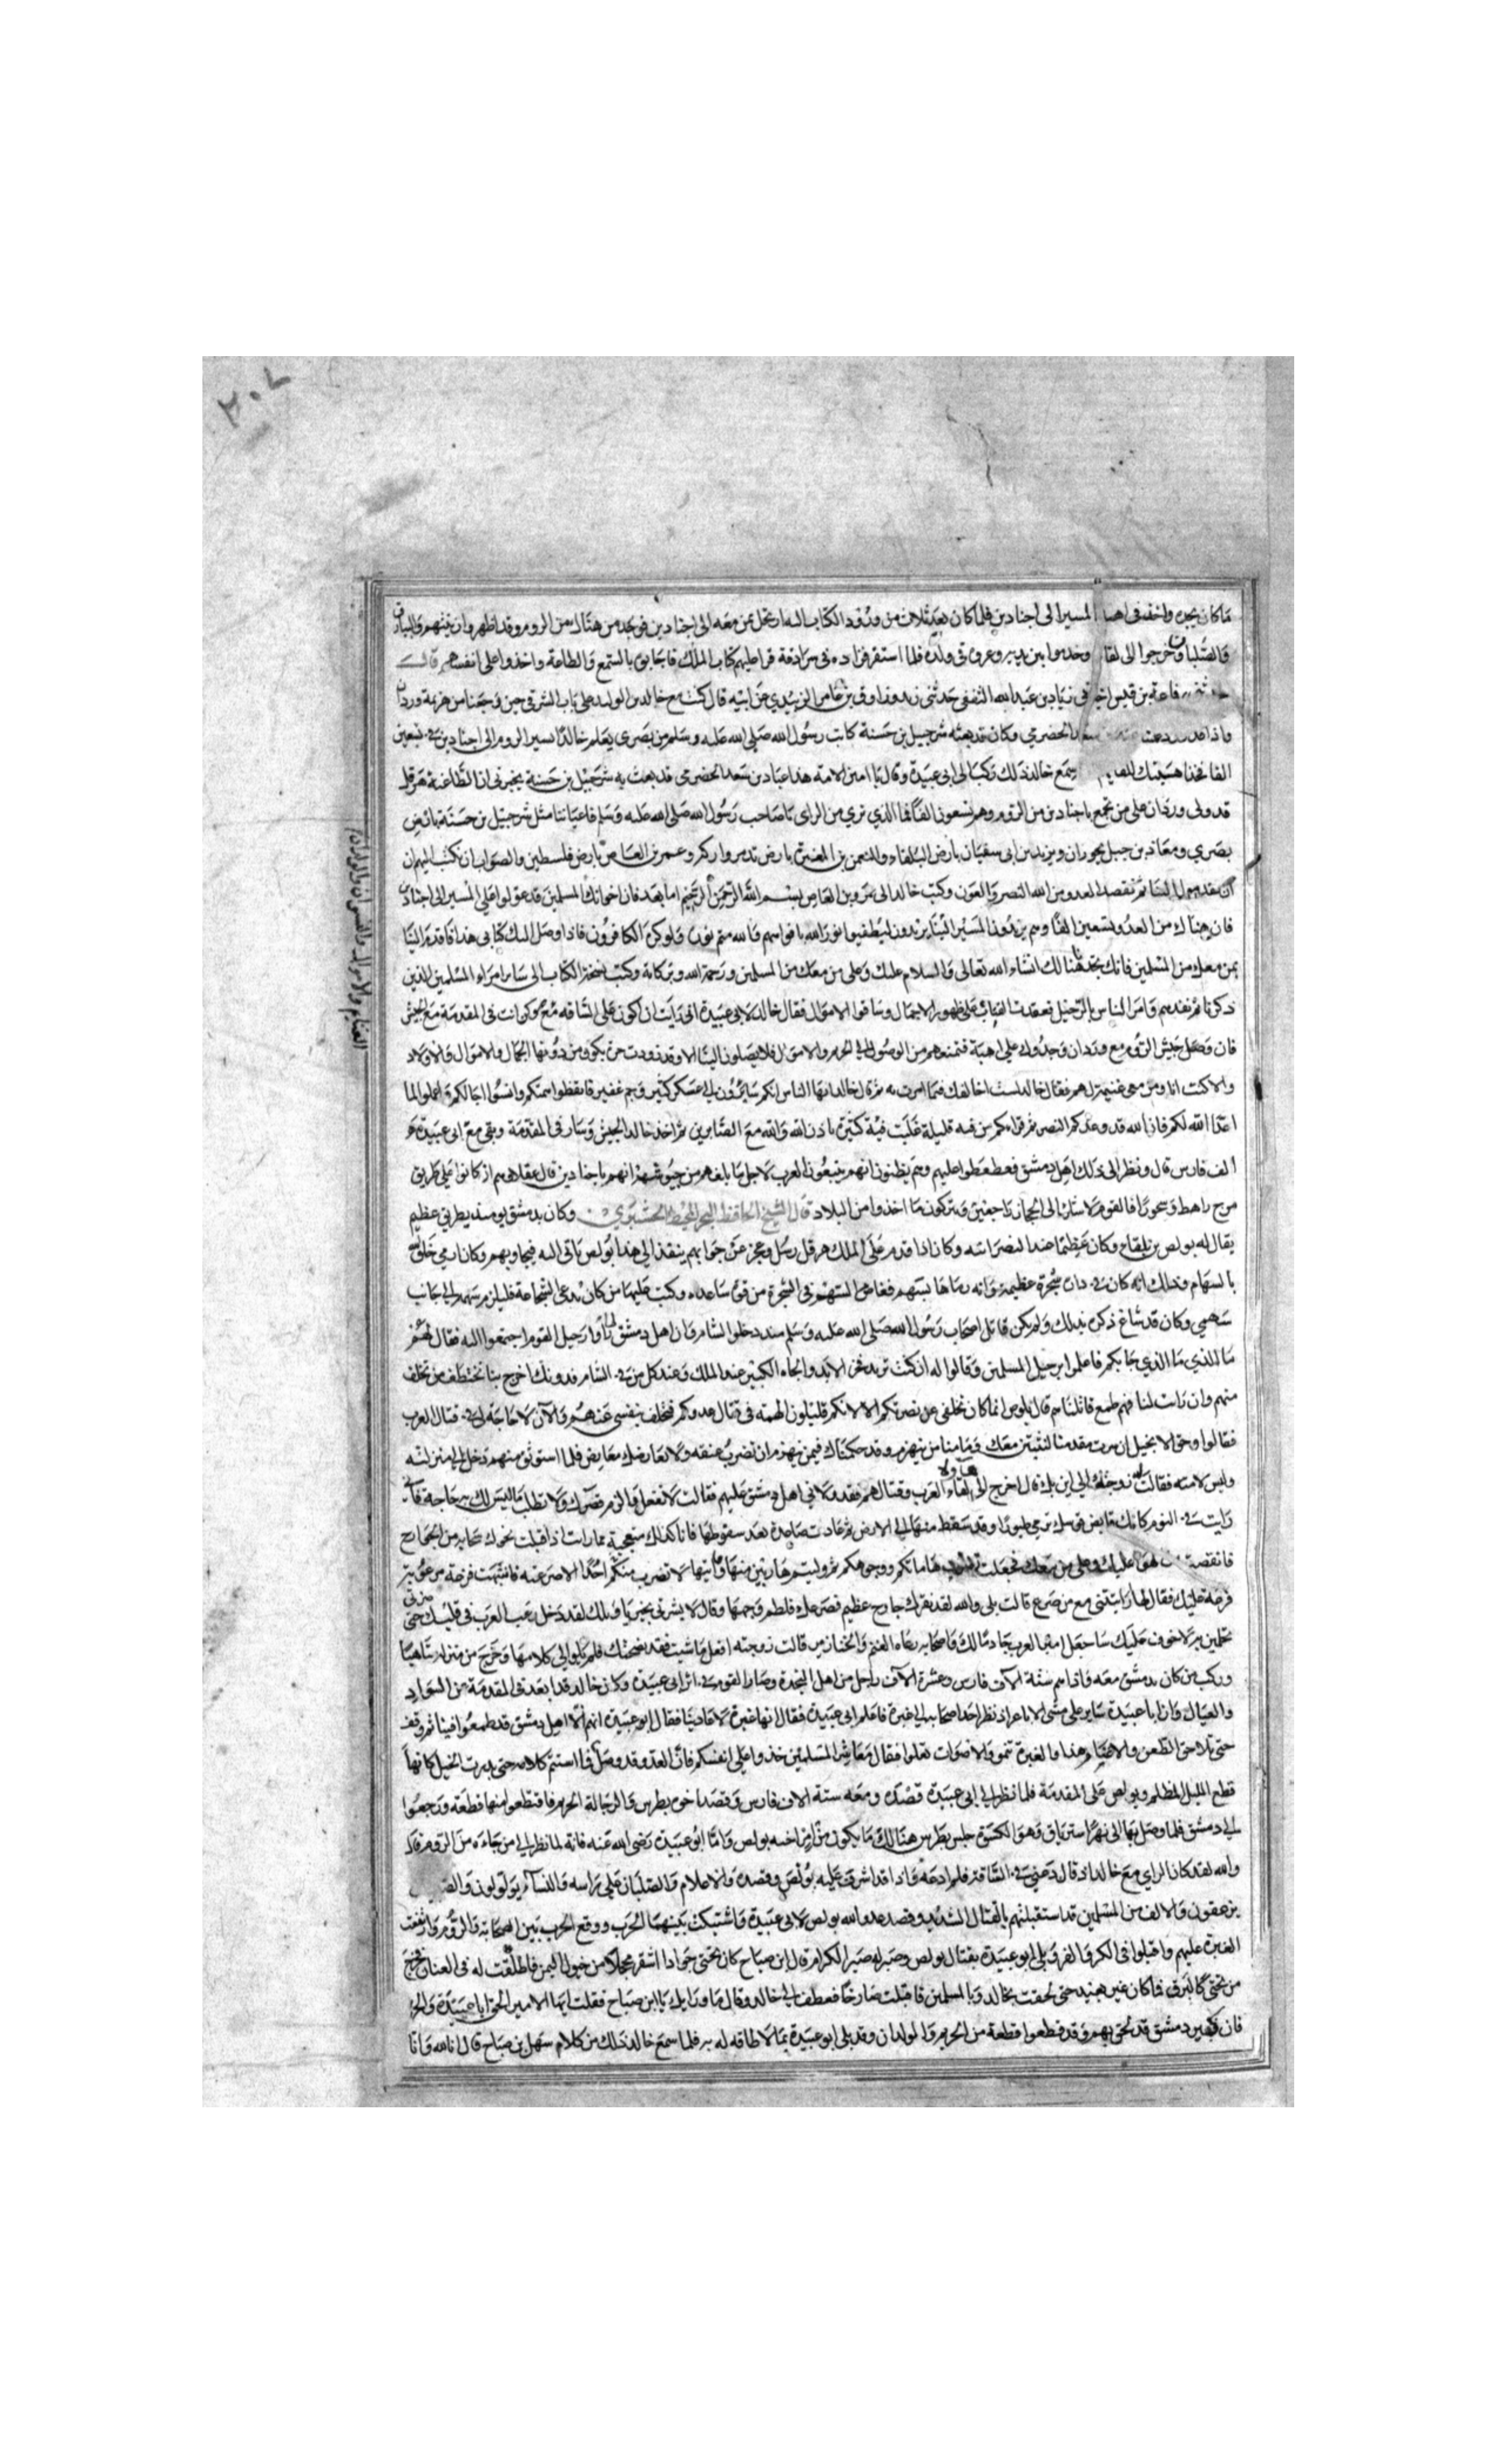 ما كان يجره واخذ فى اهبة المسير الى اجنادين فلما كان بعد ثلاث من ورود الكتاب اليه ارتحل بمن معه الى اجنادين فوجد من هناك من الروم وقد اظهروا زينتهم والبيارق
والصلبان وخرجوا الى لقائه وخدموا بين يديه وعزوه فى ولده فلما استقر قراره فى سرادقه قرا عليهم كتاب الملك فاجابوه بالسمع والطاعة واخذوا على انفسهم قال
رفاعة بن قيس اخبرنى زياد بن عبد الله الثقفى حدثنى بن عامر الزبيدي عن ابيه قال كنت مع خالد بن الوليد على باب الشرقى حين رجعنا من هزيمة وردان
واذا قد سعد الحضرمي وكان قد بعثه شرجبيل بن حسنة كاتب رسول الله صلى الله عليه وسلم من بصرى يعلم خالدا بسير الروم الى اجنادين فى تسعين
الفا سمع خالد ذلك ركب الى ابى عبيدة وقال يا امين الامة هذا عباد بن سعد الحضرمى قد بعث به شرجبيل بن حسنة يخبرنى ان الطاغية هرقل
قد ولى وردان على من تجمع باجنادين من الروم وهم تسعون الفا فما الذي تري من الراى يا صاحب رسول الله صلى الله عليه وسلم مثل شرجبيل بن حسنة بارض
بصري ومعاذ بن جبل بحوران ويزيد بن ابى سفيان بارض البلقاء والنعمن بن المغيرة بارض تدمر واركه وعمر بن العاص بارض فلسطين والصواب ان نكتب اليهم ان
ان يقدموا الينا ثم نقصد العدو من الله النصر والعون وكتب خالد الى عمرو بن العاص بسم الله الرحمن الرحيم اما بعد فان اخوانك المسلمين قد عولوا على المسير الى اجنادين
فان هناك من العدو تسعين الفا وهم يريدون المسير الينا يريدون ليطفئوا نور الله بافواههم والله متم نوره ولو كره الكافرون فاذا وصل اليك كتابى هذا فاقدم الينا
بمن معك من المسلمين فانك تجدنا هنالك ان شاء الله تعالى والسلام عليك وعلى من معك من المسلمين ورحمة الله وبركاته وكتب نسخة الكتاب الى سائر امراء المسلمين الذين
ذكرناهم وامر الناس بالرحيل على ظهور الاجمال وساقوا الاموال فقال خالد لابى عبيدة انى رايت ان اكون على الساقه وكن انت فى المقدمة مع الجيش
فان وصل جيش الروم مع وردان وجدوك على اهبة فتمنعوهم من الوصول الى الحريم والاموال فلا يصلون الينا الا وقد
والا كنت انا ومن معى غنيمة لهم فقال خالد لست اخالفك فيما امرت به ثم قال خالد ايها الناس انكم سائرون الى عسكر كثير وجم غفير فايقظوا هممكم واعملوا لما
اعد الله لكم فان الله قد وعدكم النصر ثم قراءكم من فئه قليلة غلبت فئة كثيرة باذن الله والله مع الصابرين ثم اخذ خالد الجيش وسار فى المقدمة وبقى مع ابى عبيدة
الف فارس قال ونظر الى ذلك اهل دمشق فعطعطوا عليهم وهم يظنون انهم يتبعون العرب لاجل ما بلغهم من جيوشهم انهم باجنادين قال عقلاهم ان كانوا على طريق
مرج راهط فالقوم الى الحجاز راجعين ويتركون ما اخذوا من البلاد قال الشيخ الحافظ وكان بدمشق يومئذ بطريق عظيم
يقال له بولص بن بلقاح وكان عظيما عند النصرانيه وكان اذا قدم على الملك هرقل رسل وعجز عن جوابهم ينفذ الى هذا بولص ياتى اليه فيجاوبهم وكان ارمي خلق الله
بالسهام وذلك انه كان فى داره شجرة عظيمة وانه رماها بسهم فغاص السهم فى الشجرة من قوة ساعده وكتب عليها من كان يدعى الشجاعة فليلزم سهمه الى جانب
سهمي وكان قد شاع ذكره بذلك ولم يكن قاتل اصحاب رسول الله صلى الله عليه وسلم منذ دخلوا الشام وان اهل دمشق لما راوا رحيل القوم اجتمعوا اليه فقال لهم
ما الذي جا بكم فاعلموا برحيل المسلمين وقالوا له ان كنت تريد فخر الابد والجاه الكبير عند الملك وعند كل من فى الشام فدونك اخرج بنا نختطف من تخلف
منهم وان رايت لنا فيهم طمع قاتلناهم قال بولص انما كان تخلفى عن نصرتكم الا لانكم قليلون الهمه فى قتال عدوكم فتخلف نفسى عنهم والآن لا حاجة لى فى قتال العرب
فقالوا وحق الانجيل ان سرت مقدمنا لنثبتن معك وما منا من ينهزم وقد حكمناك فيمن ينهزم ان تضرب عنقه ولا يعارضك معارض فلما استوثق منهم دخل الى منزله
ولبس لامته فقالت له زوجته الى اين قال اخرج الى لقاء العرب وقتالهم فقد ولانى اهل دمشق عليهم فقالت لا تفعل والزم قصرك ولا تطلب ما ليس لك به حاجة فانى
رايت فى النوم كانك قابض قوسك ترمي طيورا وقد سقط منها الى الارض ثم عادت صاعدة بعد سقوطها فانا كذلك متعجبة مما رايت اذ اقبلت نحوك من الجوارح
فانقضت عليك وعلى من معك فجعلت تضرب هاماتكم ووجوهكم ثم وليتم هاربين منها لا تضرب منكم احدا الا صرعته فانتبهت فزعة مرعوبة
فزعة عليك فقال لها رايتنى مع من صرع قالت بلى والله لقد نقرك جارح عظيم فصرعك فلطم وجهها وقال لا بشرتى بخير يا ويلك لقد دخل رعب العرب فى قلبك حتى
تحلمين به لا خوف عليك ساجعل العرب خادما لك واصحابه رعاه الغنم والخنازير قالت زوجته افعل ما شئت فقد نصحتك فلم يلو الى كلامها وخرج من منزله
وركب من كان بدمشق معه فاذا هم ستة الاف فارس وعشرة الآف راجل من اهل النجدة وصار القوم فى اثر ابى عبيدة وكان خالد قد ابعد فى المقدمة
والعيال وان ابا عبيدة ساير على مشى الاباعر اذ نظر احد اصحابه الى غبرة فاعلم ابى عبيدة فقال انها غبرة الاعادى فقال ابو عبيدة ان اهل دمشق قد طمعوا فينا ثم وقف
حتى تلاحق الظعن هذا والغبرة تنمو والاصوات تعلوا فقال معاشر المسلمين خذوا على انفسكم فان العدو قد وصل فما استتم كلامه حتى بدرت الخيل كانها
قطع الليل المظلم وبولص على المقدمة فلما نظر الى ابى عبيدة قصده ومعه ستة الاف فارس وقصد اخوه بطرس والرجالة الحريم فاقتطعوا منها قطعة ورجعوا
الى دمشق فلما وصل بها الى نهر استرياق وهو الكسوة جلس بطرس هنالك ما يكون من اخيه بولص واما ابو عبيدة رضى الله عنه فانه لما نظر الى من جاءه من الروم قال
والله لقد كان الراي مع خالد اذ قال دعنى فى الساقة فلم ادعه واذا قد اشرف عليه بولص وقصده والاعلام والصلبان على راسه والنساء يولولون
يزعقون والالف من المسلمين قد استقبلتهم بالقتال الشديد وقصد عدو الله بولص لابى عبيدة واشتبكت بينهما الحرب ووقع الحرب بين الصحابة والروم وارتفعت
الغبرة عليهم واقبلوا فى الكر والفر وبلى ابو عبيدة بقتال بولص وصبر له صبر الكرام قال ابن صباح كان تحتى جوادا اشقر محجلا من خيول اليمن فاطلقت له فى العنان فخرج
من تحتى كالبرق فما كان غير هنيه حتى لحقت بخالد وبالمسلمين فاقبلت صارخا فعطف الى خالد وقال ما وراك يا ابن صباح فقلت ايها الامير الحق ابا عبيدة والحريم
فان نفير دمشق قد لحق بهم وقد قطعوا قطعة من الحريم والولدان وقد بلى ابو عبيدة بما لا طاقه له به فلما سمع خالد ذلك من كلام سهل بن صباح قال انا لله وانا